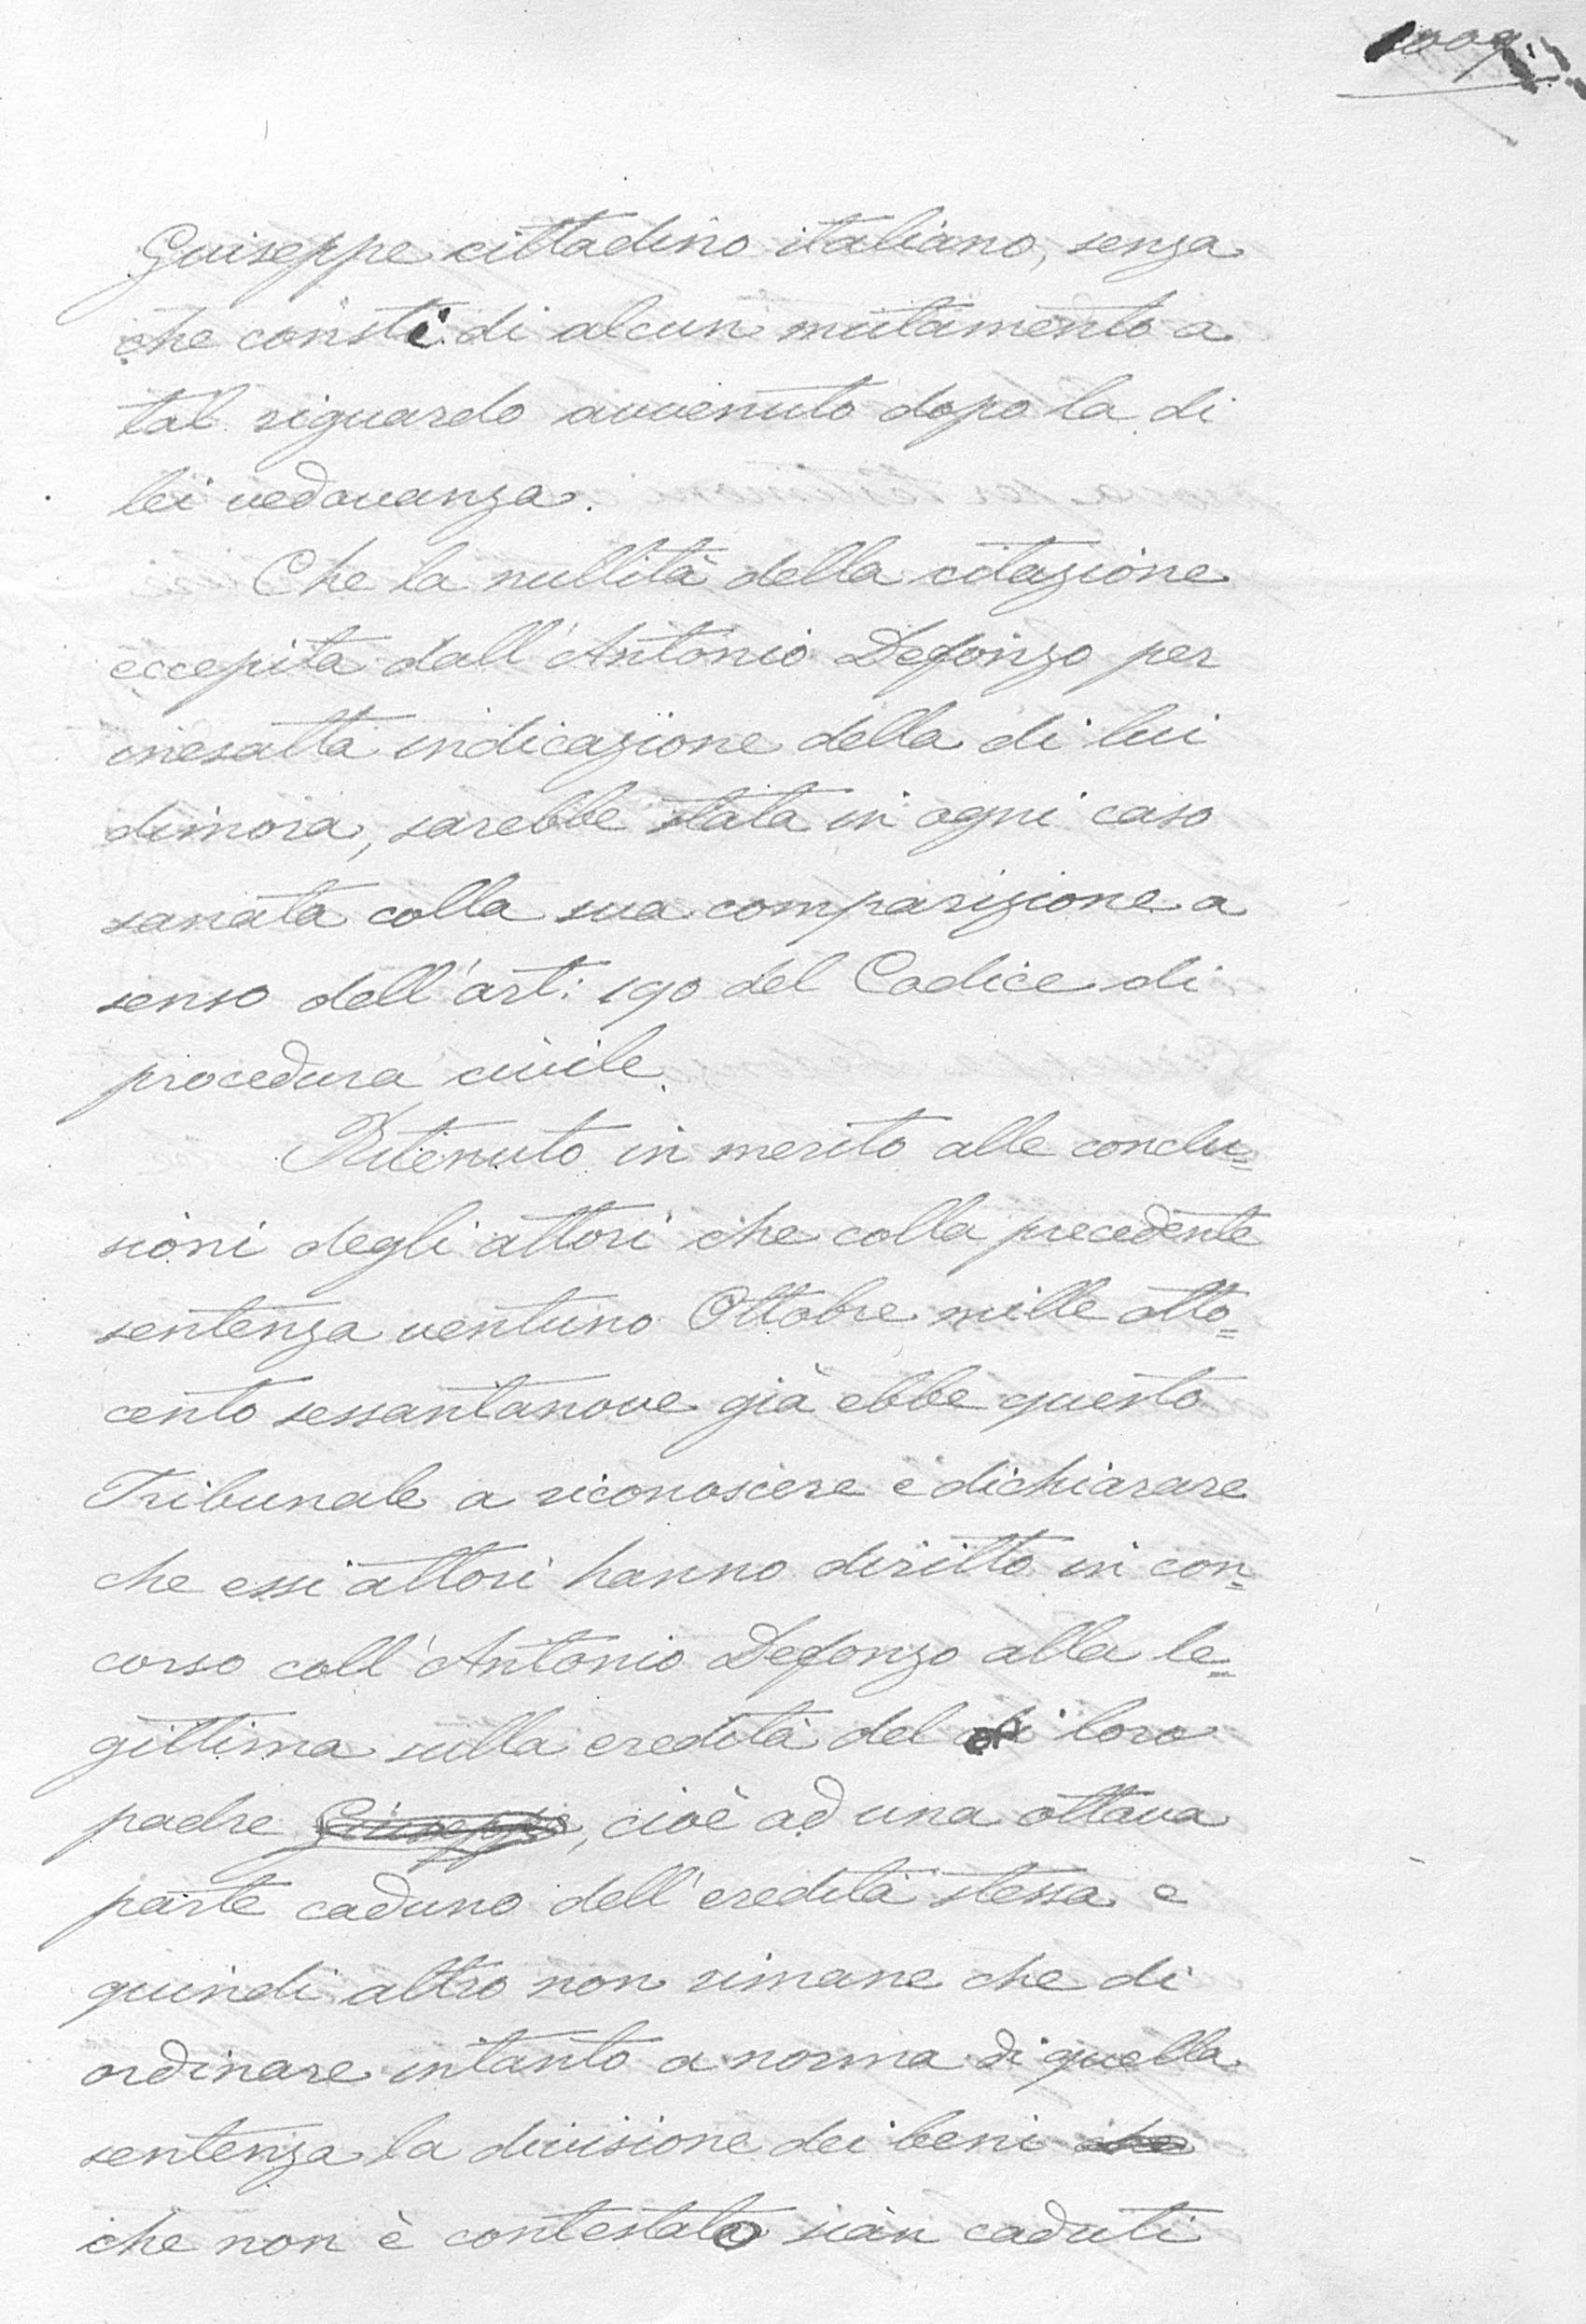 1009
Guiseppe cittadino italiano, senza
che consti di alcun mutamento a
tal riguardo avvenuto dopo la di
lei vedovanza.
Che la nullità della citazione
eccepita dall'Antonio Defonzo per
inesatta indicazione della di lui
dimora, sarebbe stata in ogni caso
sanata colla sua comparizione a
senso dell'art: 190 del Codice di
procedura civile.
Ritenuto in merito alle conclu=
sioni degli attori che colla precedente
sentenza ventuno Ottobre mille otto=
cento sessantanove già ebbe questo
Tribunale a riconoscere e dichiarare
che essi attori hanno diritto in con=
corso coll'Antonio Defonzo alla le=
gittima sulla eredità del di loro
padre Giuseppe, cioè ad una ottava
parte caduno dell'eredità stessa e
quindi altro non rimane che di
ordinare intanto a norma di quella
sentenza la divisione dei beni che
che non è contestato sian caduti